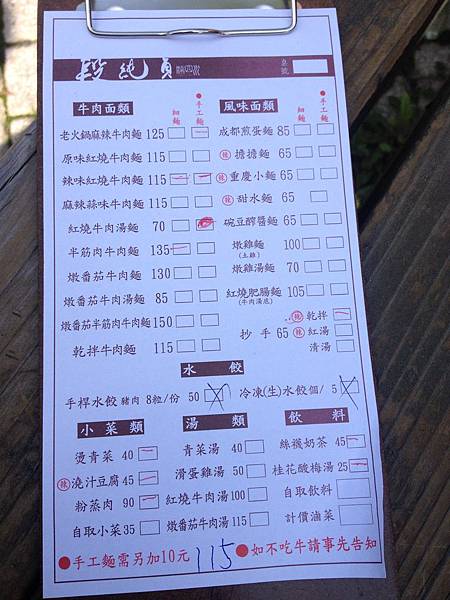 段純貞 桌號
牛肉面類 細麵 ●手工麵
老火鍋麻辣牛肉麵 125
原味紅燒牛肉麵 115
辣味紅燒牛肉麵 115
麻辣蒜味牛肉麵 115
紅燒牛肉湯麵 70
半筋肉牛肉麵 135
燉番茄牛肉麵 130
燉番茄牛肉湯麵 85
燉番茄半筋肉牛肉麵 150
乾拌牛肉麵 115
風味面類 細麵 ●手工麵
成都煎蛋麵 85
辣 擔擔麵 65
辣 重慶小麵 65
辣 甜水麵 65
碗豆醡醬麵 65
燉雞麵 100
(土雞)
燉雞湯麵 70
紅燒肥腸麵 105
(牛肉湯底)
辣 乾拌
抄手 65 辣 紅湯
清湯
水餃
手桿水餃 豬肉 8粒/份 50
冷凍(生)水餃個/ 5
小菜類
燙青菜 40
辣 澆汁豆腐 45
粉蒸肉 90
自取小菜 35
湯類
青菜湯 40
滑蛋雞湯 50
紅燒牛肉湯 100
燉番茄牛肉湯 115
飲料
絲襪奶茶 45
桂花酸梅湯 25
自取飲料
計價滷菜
●手工麵需另加10元 115 ●如不吃牛請事先告知